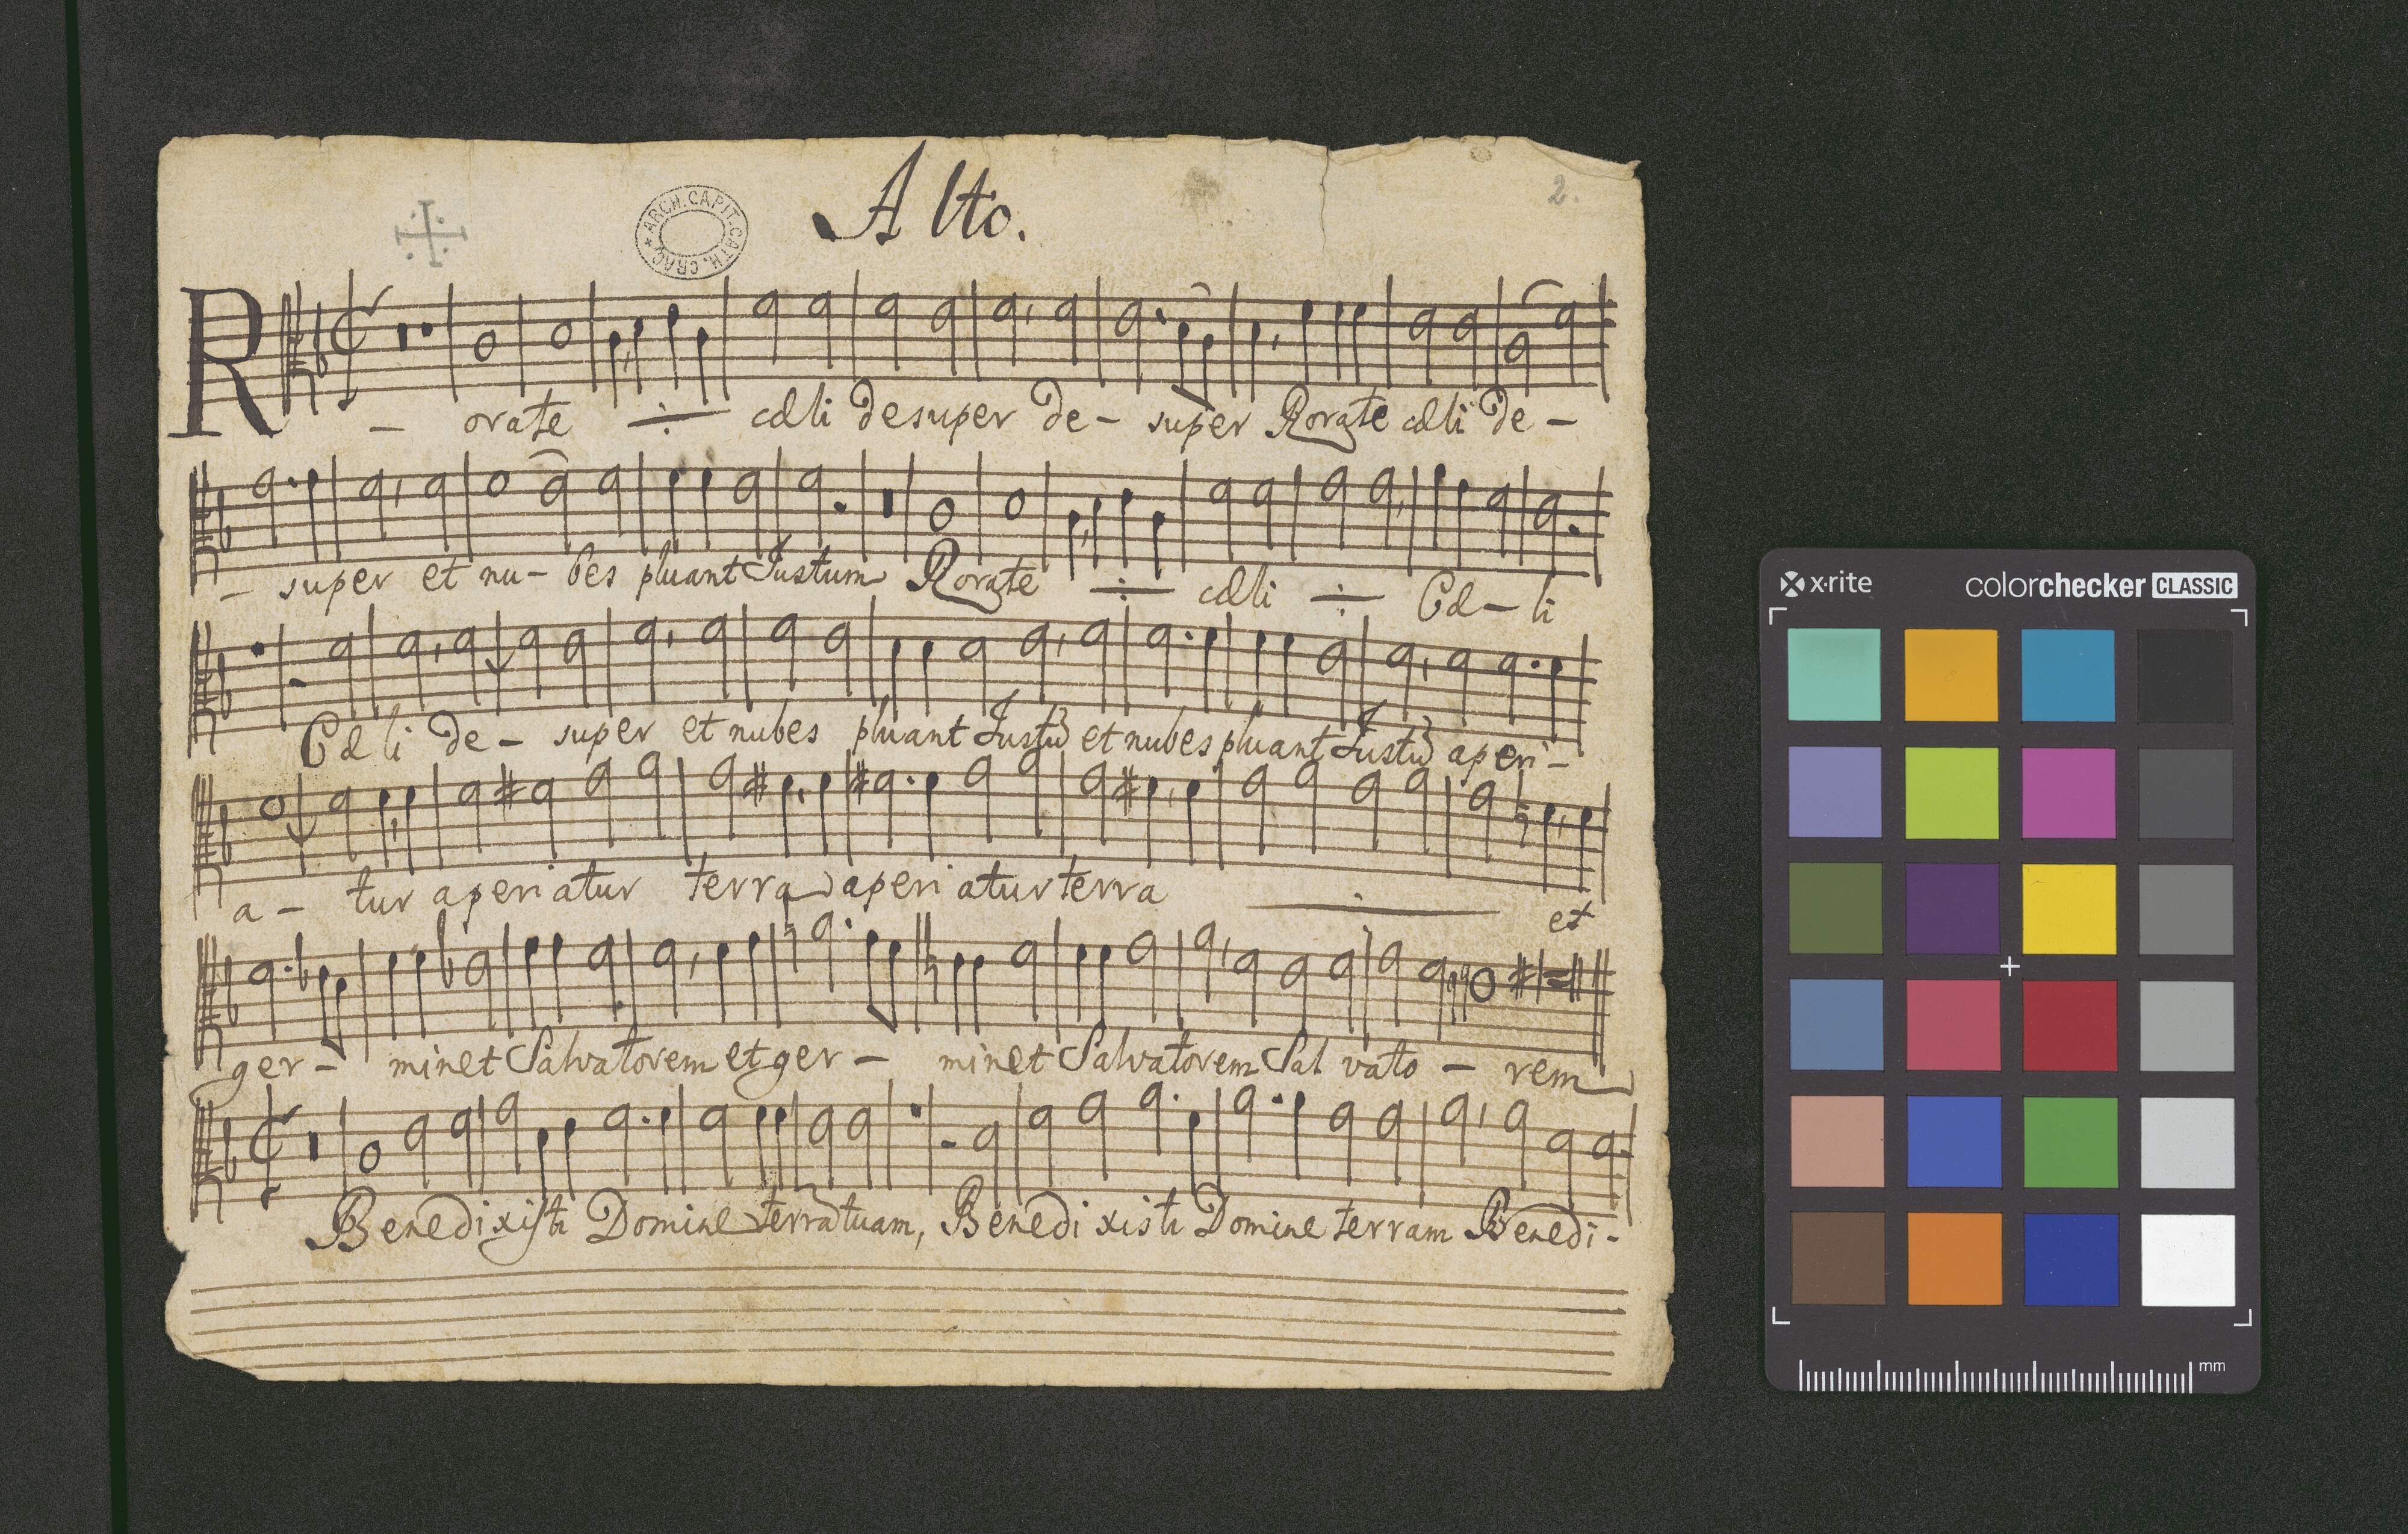 Alto.
2.
ARCH. CAPIT. CATH. CRAC.
R - orate ÷ cæli desuper de - super Rorate cæli de -
- super et nu - bes pluant Justum Rorate ÷ cæli ÷ Cæ - li
Cæli de - super et nubes pluant Justū et nubes pluant Justū aperi -
a - tur aperiatur terra aperiatur terra ÷ et
ger - minet Salvatorem et ger - minet Salvatorem Salvato - rem
Benedixisti Domine terrā tuam, Benedixisti Domine terram Benedi -
x·rite colorchecker CLASSIC
mm